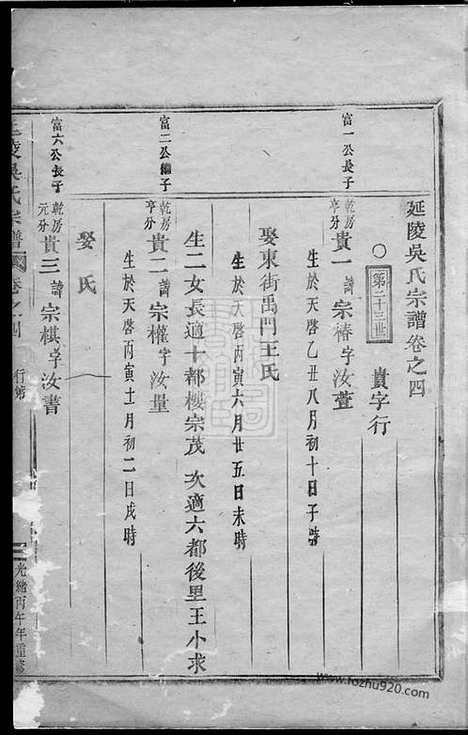 延陵吳氏宗譜卷之四
○ 第二十三世 貴字行
富一公長子
乾房亨分 貴一 諱宗椿字汝萱
生於天啓乙丑八月初十日子時
娶東街禹門王氏
生於天啓丙寅六月廿五日未時
生二女長適十都樓宗茂 次適六都後里王小求
富二公繼子
乾房亨分 貴二 諱宗權字汝量
生於天啓丙寅十月初二日戌時
娶 氏
富六公長子
乾房元分 貴三 諱宗棋字汝書
延陵吳氏宗譜 卷之四 行第 光緒丙午年重修
www.tozhu920.com